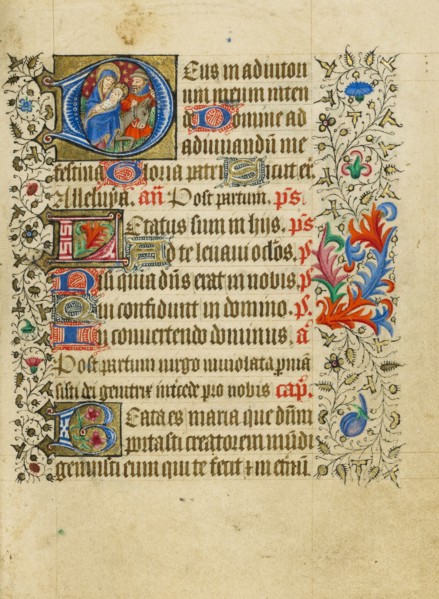 Deus in adiutori
um meum inten
de Domine ad
adiuuandū me
festina Gloria patri Sicut er̄
Alleluya. añ Post partum. p̄s
Letatus sum in hijs. p̄s
Ad te leuaui oclos. p̄
Nisi quia dn̄s erat in nobis. p̄
Qui confidunt in domino. p̄
In conuertendo dominus. ā
Post partum uirgo inuiolata p̄manā
sisti dei genitrix intcede pro nobis cap̄.
Beata es maria que dn̄m
portasti creatorem mūdi
genuisti eum qui te fecit ⁊ in et̄nū